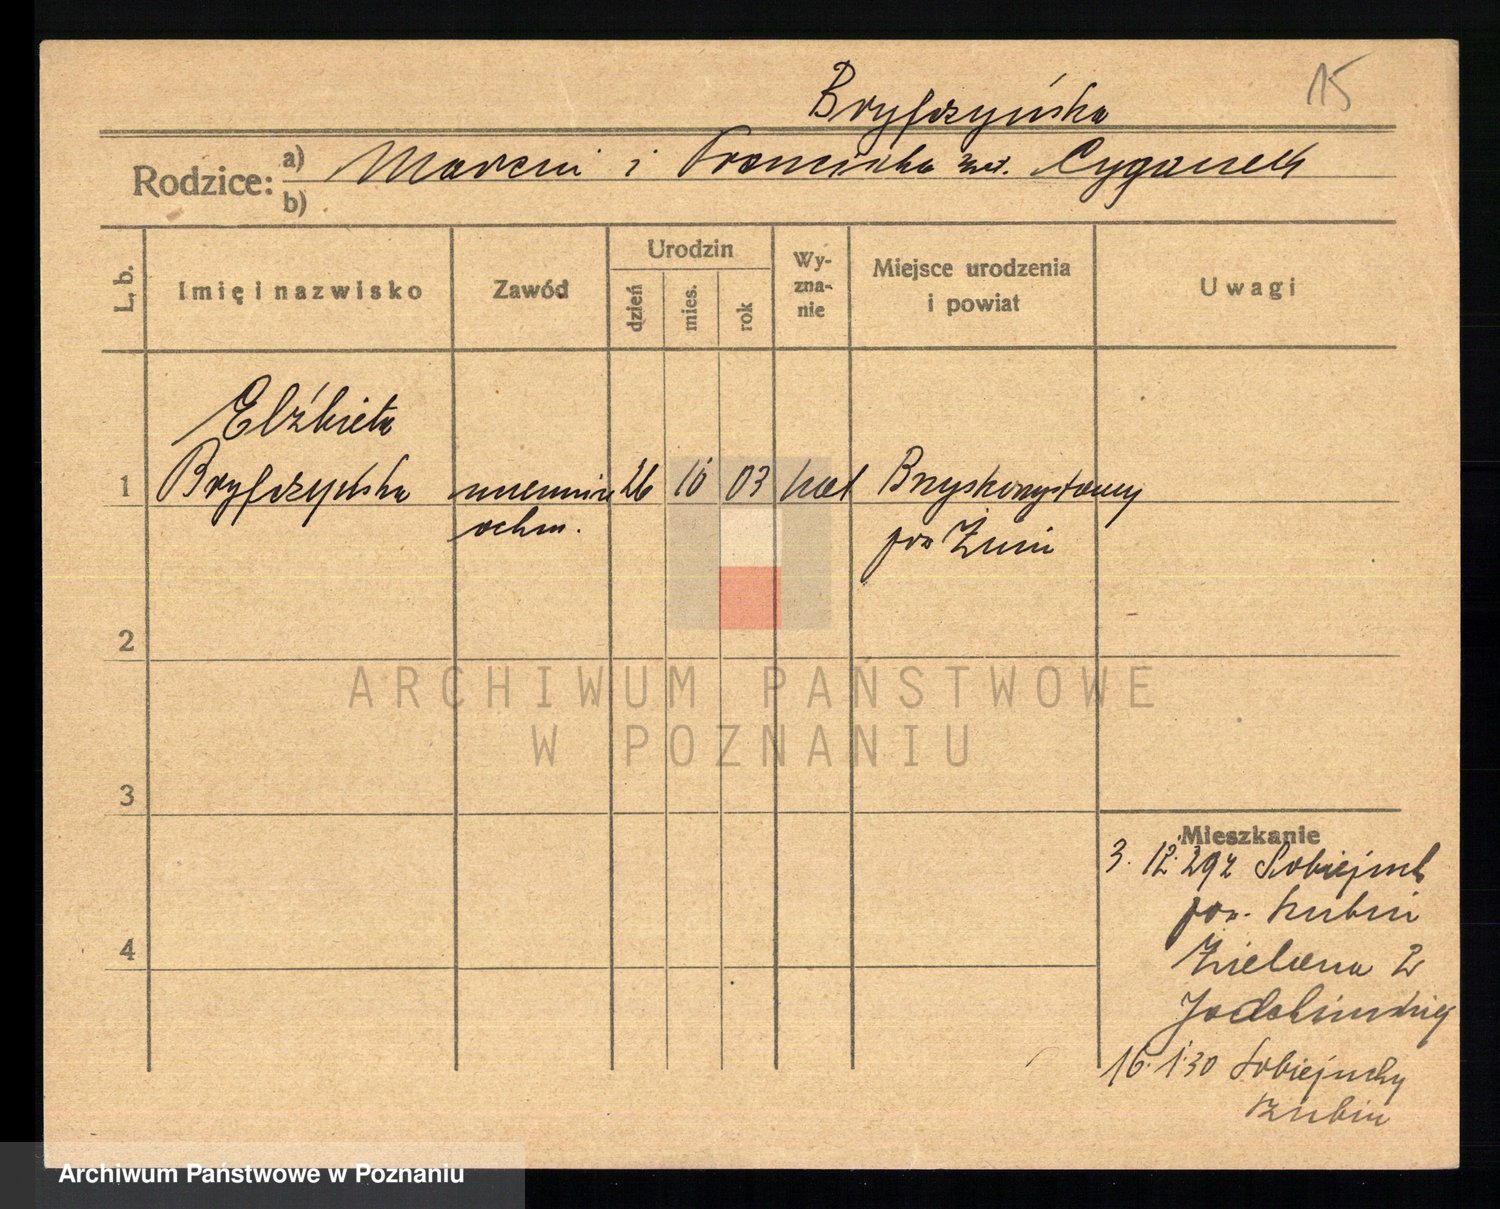 15
Bryfczyńska
Rodzice: a) Marcin i Franciszka zd. Cyganek
b)
L. b. Imię i nazwisko Zawód Urodzin dzień mies. rok Wy-zna-nie Miejsce urodzenia i powiat Uwagi
Elżbieta
1 Bryfczyńska uczennica 26 10 03 kat Brzyskorzystewy
ochm. pow Żnin
2
ARCHIWUM PAŃSTWOWE
W POZNANIU
3
Mieszkanie
3. 12. 29 z Sobiejuch
pow. Szubin
4
Zielona 2
16. 1. 30 Sobiejuchy
Szubin
Archiwum Państwowe w Poznaniu